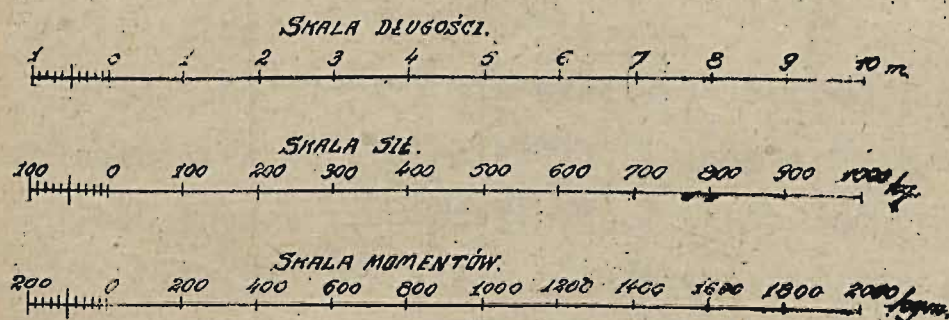 SKALA DŁUGOŚCI.
1 0 1 2 3 4 5 6 7 8 9 10 m
SKALA SIŁ.
100 0 100 200 300 400 500 600 700 800 900 1000 kg.
SKALA MOMENTÓW.
200 0 200 400 600 800 1000 1200 1400 1600 1800 2000 kgm.